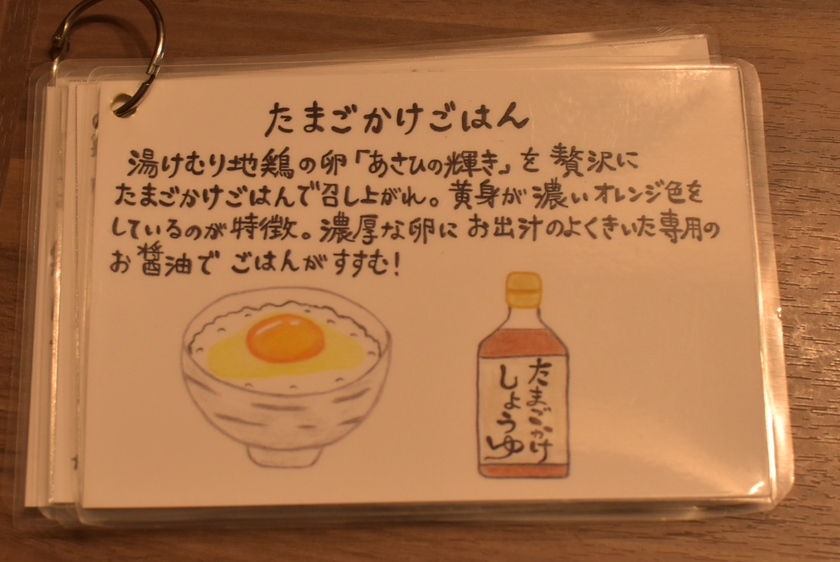 たまごかけごはん
湯けむり地鶏の卵「あさひの輝き」を贅沢に
たまごかけごはんで召し上がれ。黄身が濃いオレンジ色を
しているのが特徴。濃厚な卵にお出汁のよくきいた専用の
お醤油でごはんがすすむ!
たまごかけ
しょうゆ